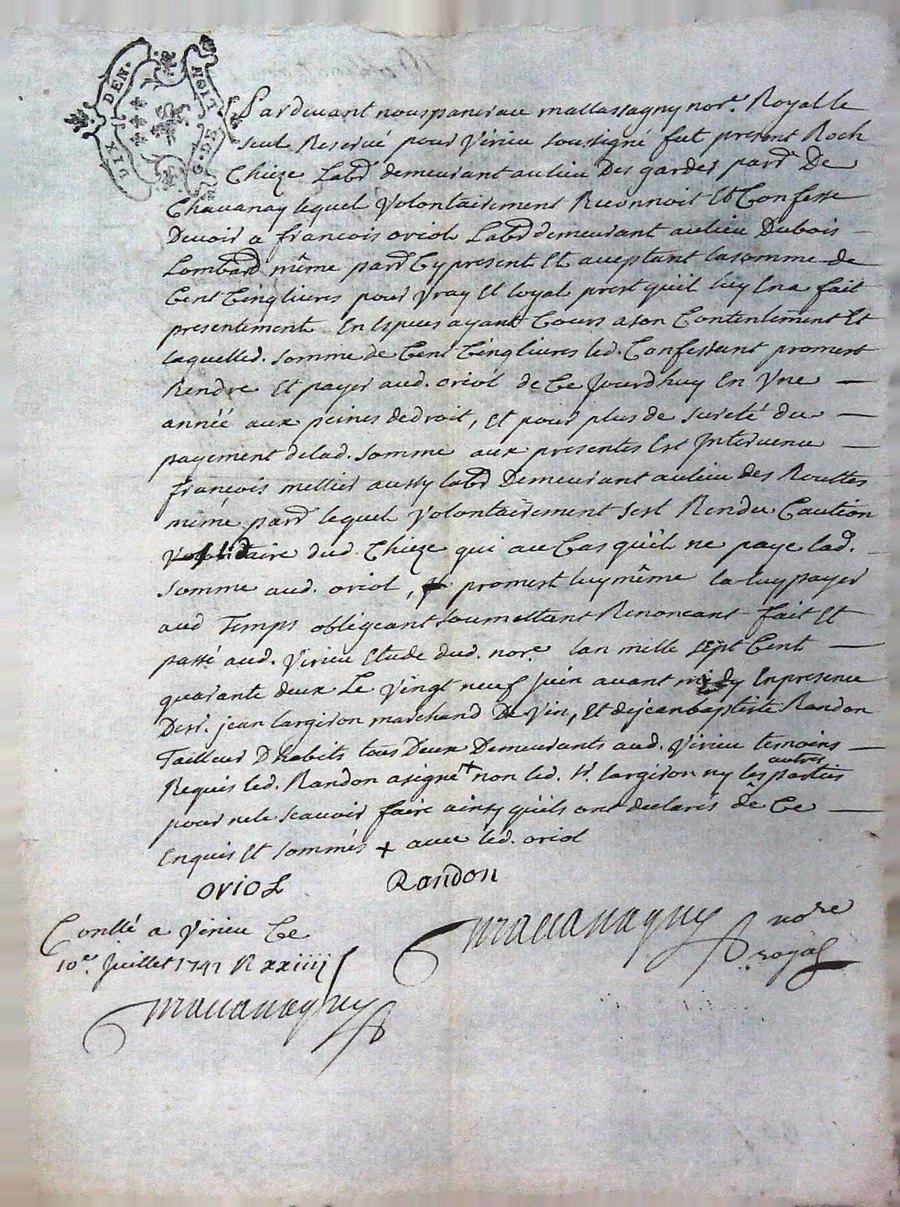 DIX DEN.
Pardevant nous pancrace mattassagny nore. Royal le
seul Reservé pour Virieu soussigné fut present Roch
Chieze Labr demeurant au lieu Des gardes parr. De
Chavanay lequel Volontairement Reconnoit Et Confesse
Devoir a francois oriol Labr demeurant au lieu Dubois
Lombard même parr Cy present Et aceptant la somme de
Cent Cinq livres pour Vray Et loyal prest qu'il luy En a fait
presentement En Especes ayant Cours a son Contentement Et
laquelled. somme de Cent Cinq livres led. Confessant promest
Rendre Et payer aud. oriol de Ce Jourdhuy En Vne
année aux peines de droit, Et pour plus de sureté du
payement delad. somme aux presentes Est Intervenu
françois mettier aussy labr Demeurant au lieu des Routtes
même parr lequel Volontairement s'est Rendu Caution
dud. Chieze qui au Cas qu'il ne paye lad.
somme aud. oriol, promest luy même la luy payer
aud Temps obligeant soumettant Renoncant fait Et
passé aud. Virieu Etude dud. nore. lan mille sept Cent
quarante deux Le Vingt neuf juin avant midy En presence
De sr. jean largiron marchand De Vin, Et de jean baptiste Randon
Tailleur D'habits tous Deux Demeurants aud. Virieu temoins
Requis led. Randon a signé + non led. sr. largiron ny les autres parties
pour ne le scavoir faire ainsy qu'ils ont declarés de Ce
Enquis Et sommés + avec led. oriol
ORIOL Randon
nore
royal
Conllé a Virieu Ce
10e. Juillet 1742 R xxiiii s